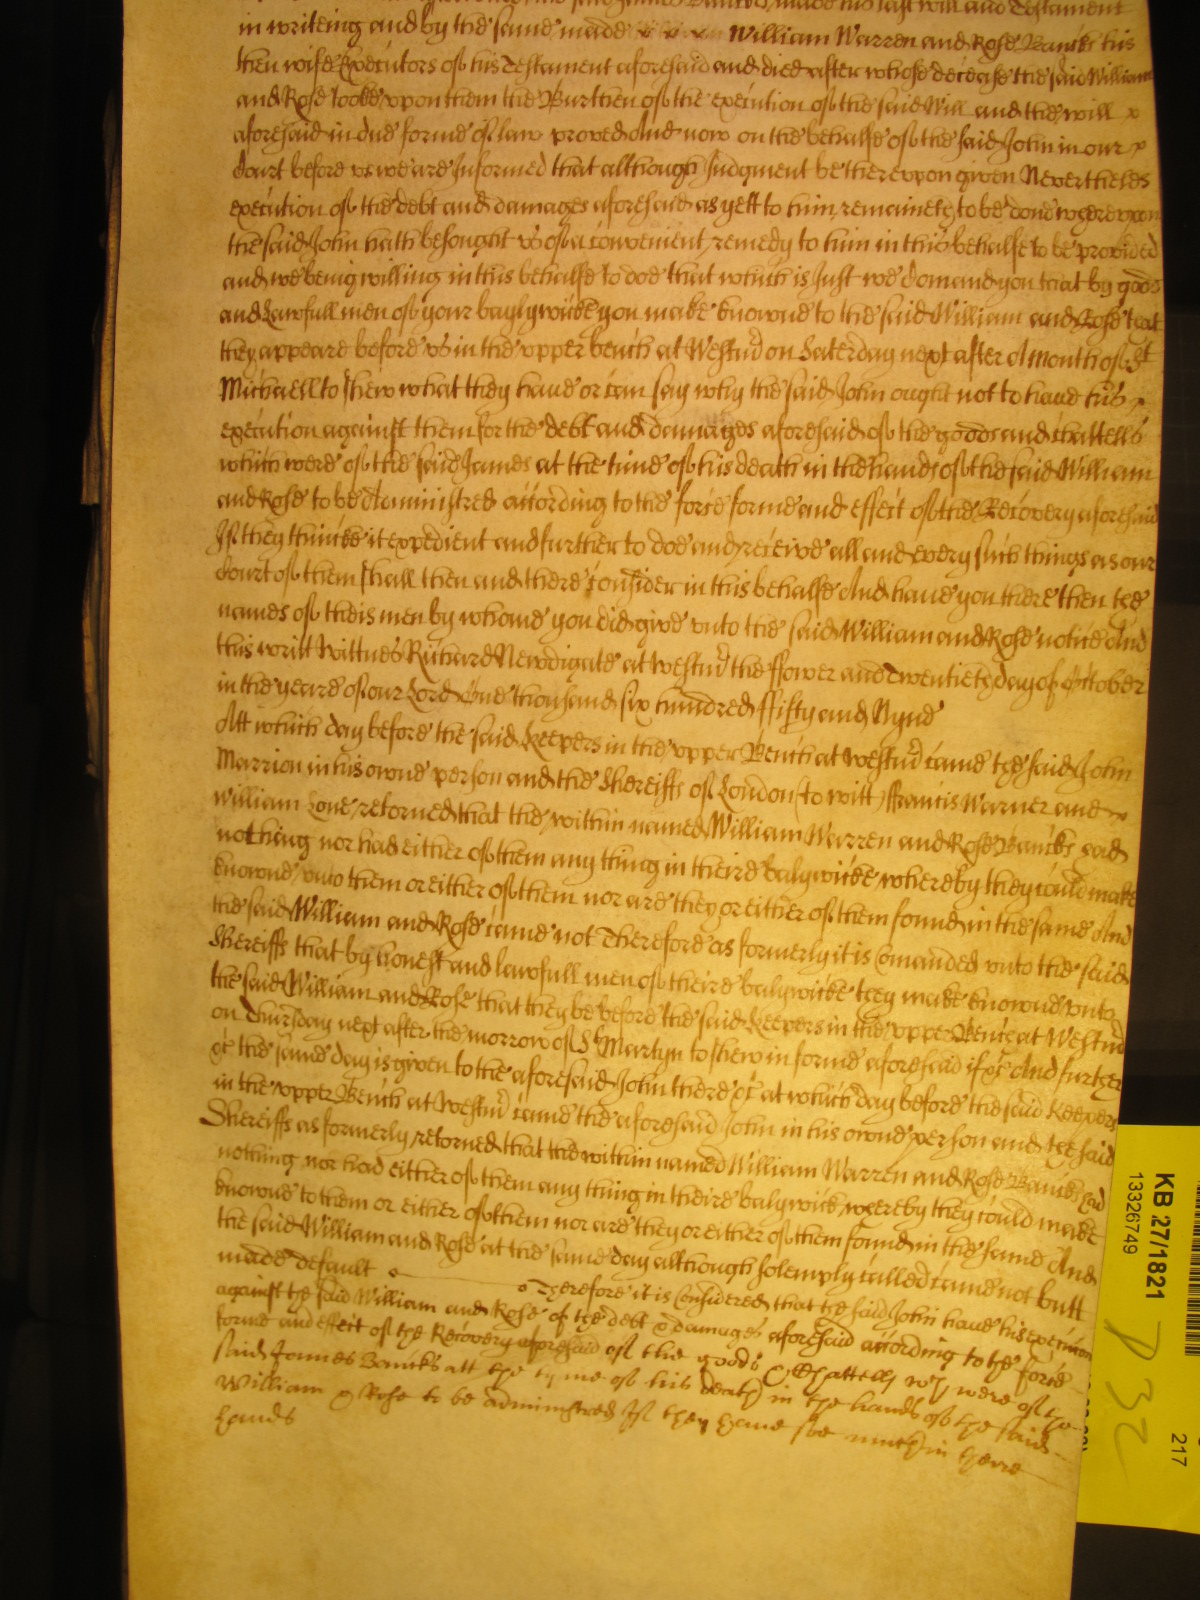 said James Banckes made his last will and Testament
in writeing and by the same made x x x William Warren and Rose Banckes his
then wife Executors of his Testament aforesaid and died after whose decease the said William
and Rose tooke vpon them the Burthen of the execution of the said Will and the will x
aforesaid in due forme of law proved And now on the behalfe of the said John in our x
Court before vs we are Informed that although Judgment be therevpon given Neverthelesse
execution of the debt and damages aforesaid as yett to him remaineth to be done wherevpon
the said John hath besought vs of a convenient remedy to him in this behalfe to be provided
and we being willing in this behalfe to doe that which is Just we Comand you that by good
and Lawfull men of your baylywicke you make knowne to the said William and Rose that
they appeare before vs in the vpper bench at Westmr on Saterday next after A month of St
Michaell to shew what they haue or can say why the said John ought not to haue his x
execution against them for the debt and damages aforesaid of the goods and chattells
which were of the said James at the time of his death in the hands of the said William
and Rose to be Administred according to the force forme and effect of the Recovery aforesaid
If they thincke it expedient and further to doe and receive all and every such things as our
Court of them shall then and there consider in this behalfe And haue you there then the
names of theis men by whome you did give vnto the said William and Rose notice And
this writt Wittnes Richard Newdigate at Westmr the ffower and Twentieth day of October
in the yeare of our Lord One thousand six hundred ffifty and Nyne
Att which day before the said Keepers in the vpper Bench at Westmr came the said John
Marrion in his owne person and the Shereiffs of London (to witt) ffrancis Warner and x
William Love retorned that the within named William Warren and Rose Banckes had
nothing nor had either of them any thing in theire balywicke whereby they could make
knowne vnto them or either of them nor are they or either of them found in the same And
the said William and Rose came not Therefore as formerly it is Comanded vnto the said
Shereiffs that by honest and lawfull men of theire balywicke they make knowne vnto
the said William and Rose that they be before the said Keepers in the vpper Bench at Westmr
on Thursday next after the morrow of St Martyn to shew in forme aforesaid if &c And further
&c the same day is given to the aforesaid John there &c at which day before the said Keepers
in the vpper Bench at Westmr came the aforesaid John in his owne person and the said
Shereiffs as formerly retorned that the within named William Warren and Rose Banckes had
nothing nor had either of them any thing in theire balywick whereby they could make
knowne to them or either of them nor are they or either of them found in the same And
the said William and Rose at the same day although solemply called came not butt
made default Therefore it is Considered that the said John haue his execucion
against the said William and Rose of the debt & damages aforesaid according to the force
forme and effect of the Recovery aforesaid of the goods & Chattells wch were of the
said James Banckes att the tyme of his death in the hands of the said
William & Rose to be administred If they haue soe much in theire
hands
KB 27/1821
13326749
217